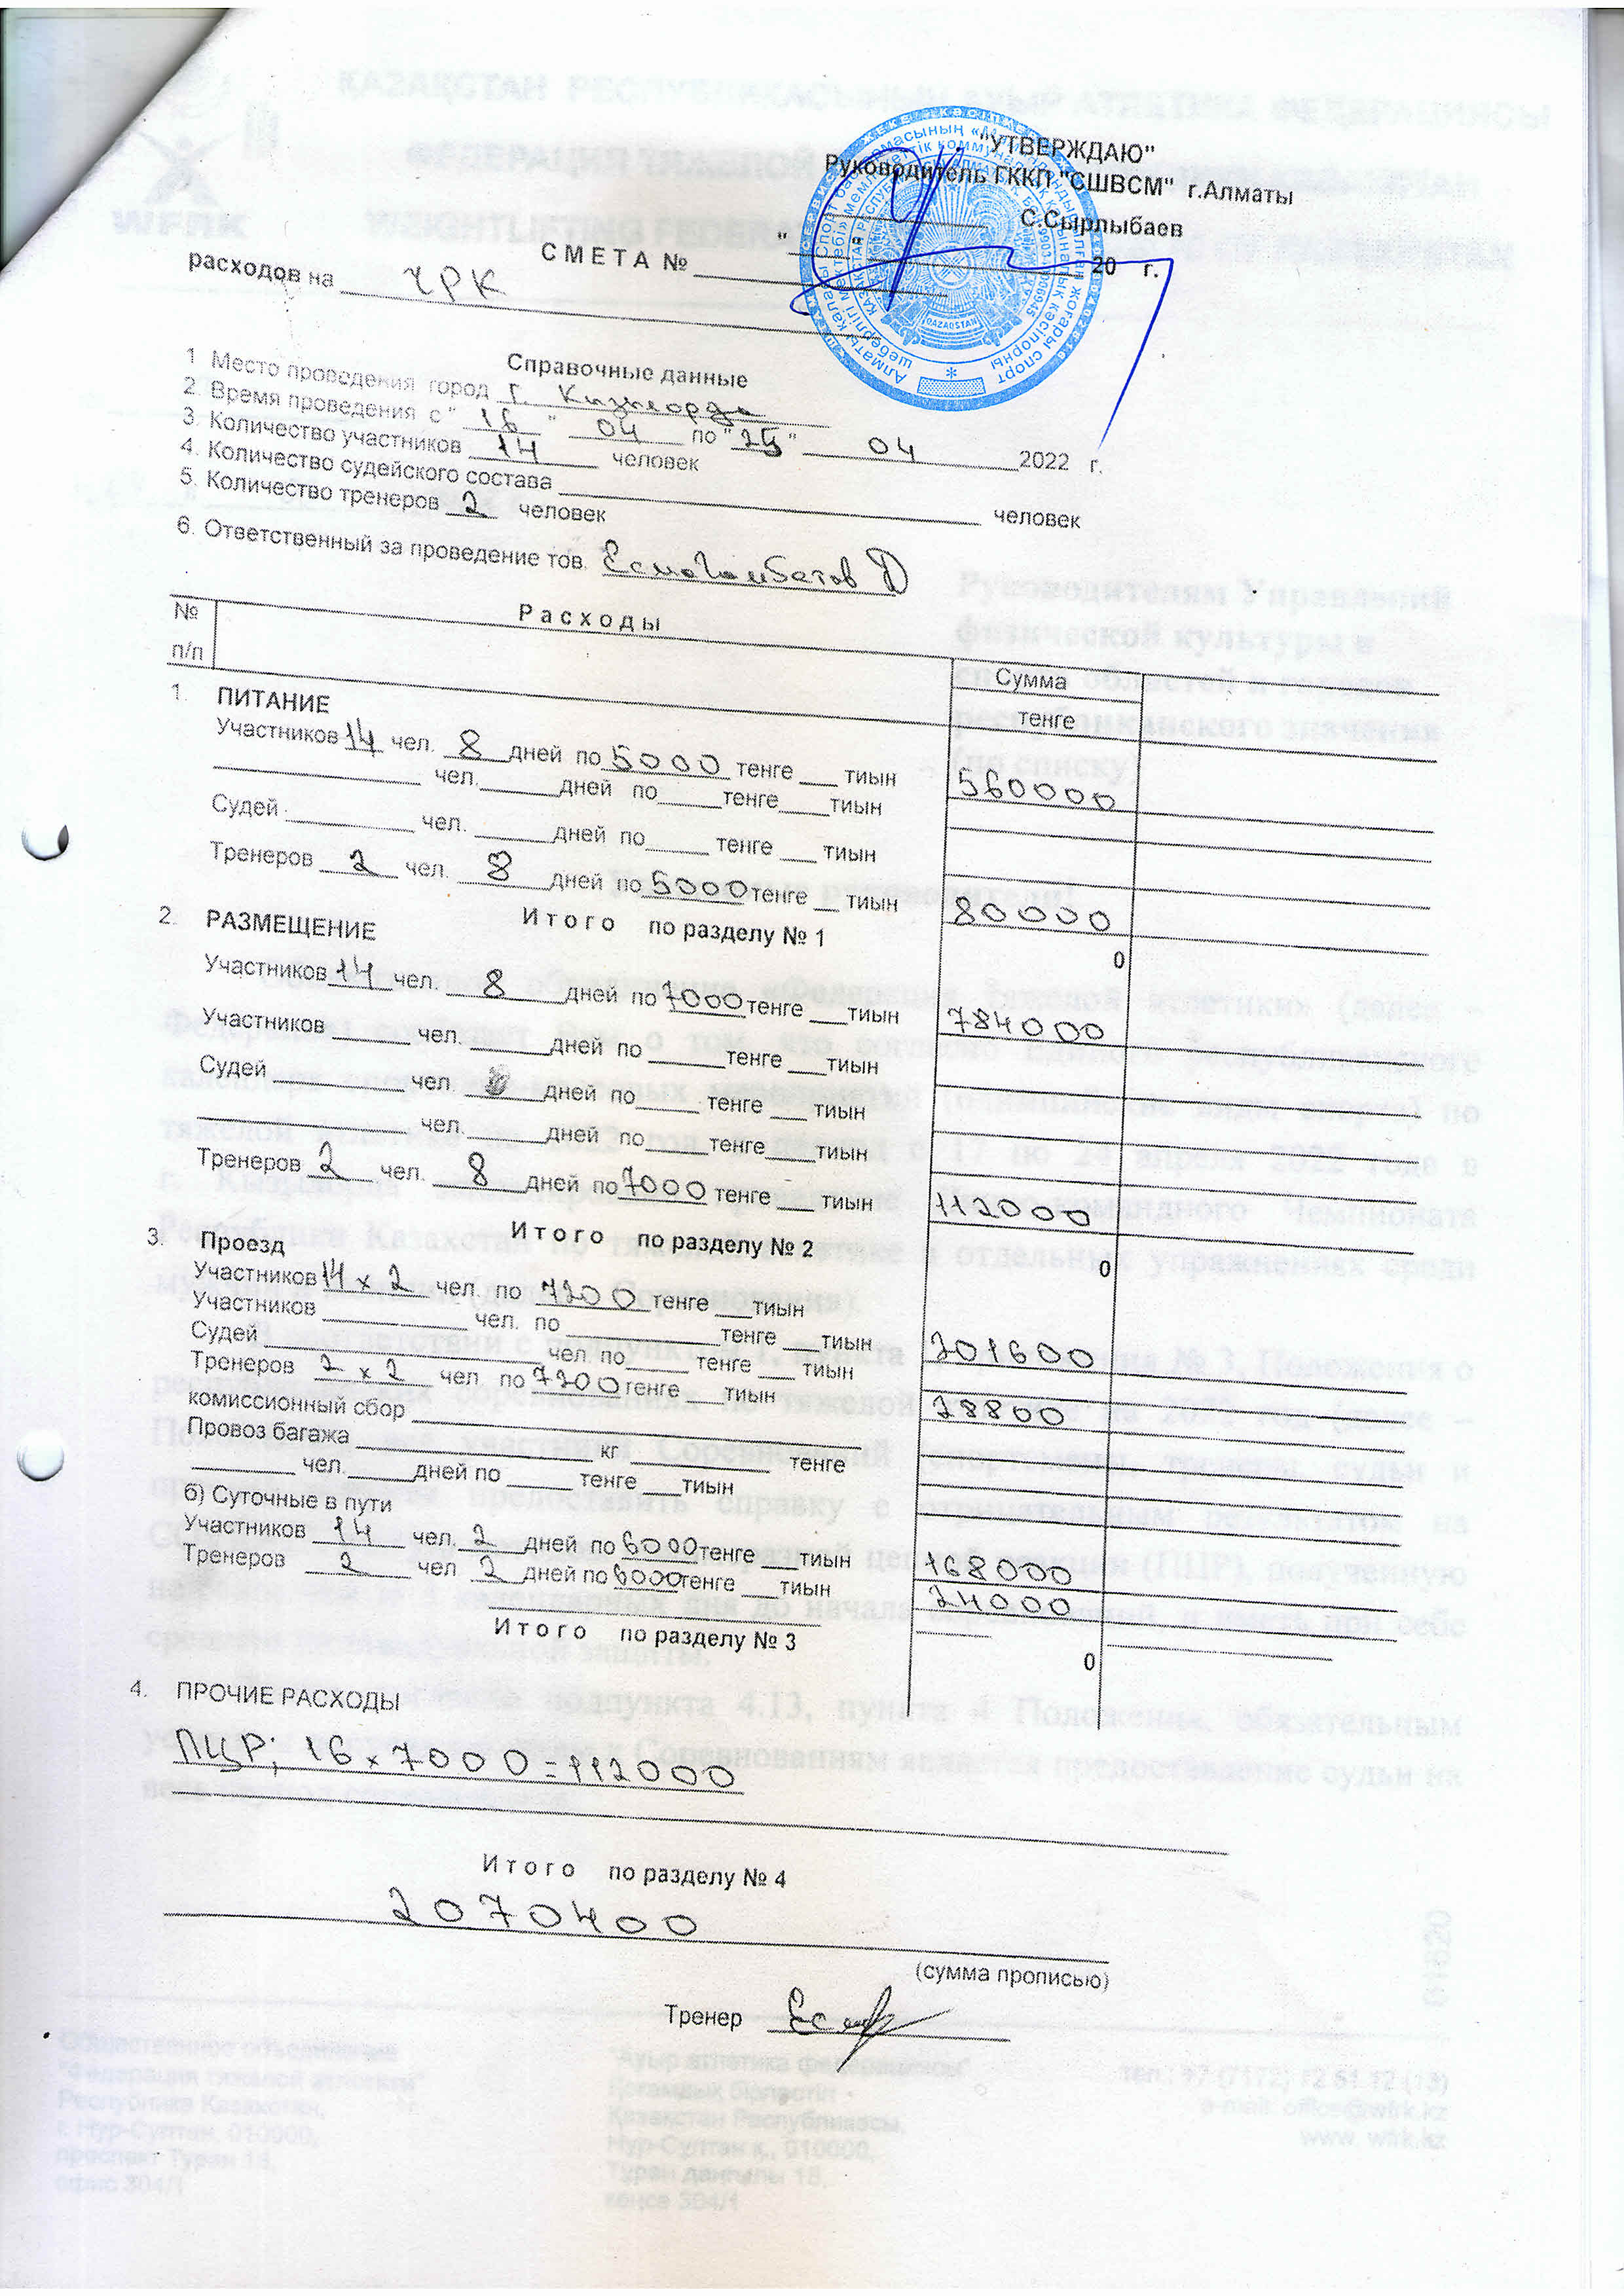 "УТВЕРЖДАЮ"
Руководитель ГККП "СШВСМ" г.Алматы
С.Сырлыбаев
" " 20 г.
С М Е Т А №
расходов на ЧРК
Справочные данные
1 Место проведения город г. Кизилорда
2. Время проведения с " 16 " 04 по " 25 " 04 2022 г.
3. Количество участников 14 человек
4. Количество судейского состава человек
5. Количество тренеров 2 человек
6. Ответственный за проведение тов. Есмагамбетов Д
№ п/п Р а с х о д ы Сумма тенге
1. ПИТАНИЕ
Участников 14 чел. 8 дней по 5000 тенге тиын 560000
чел. дней по тенге тиын
Судей чел. дней по тенге тиын
Тренеров 2 чел. 8 дней по 5000 тенге тиын 80000
И т о г о по разделу № 1 0
2. РАЗМЕЩЕНИЕ
Участников 14 чел. 8 дней по 7000 тенге тиын 784000
Участников чел. дней по тенге тиын
Судей чел дней по тенге тиын
чел. дней по тенге тиын
Тренеров 2 чел. 8 дней по 7000 тенге тиын 112000
И т о г о по разделу № 2 0
3. Проезд
Участников 14 x 2 чел. по 7200 тенге тиын 201600
Участников чел. по тенге тиын
Судей чел. по тенге тиын
Тренеров 2 x 2 чел по 7200 тенге тиын 28800
комиссионный сбор
Провоз багажа кг тенге
чел. дней по тенге тиын
б) Суточные в пути
Участников 14 чел. 2 дней по 6000 тенге тиын 168000
Тренеров 2 чел 2 дней по 6000 тенге тиын 24000
И т о г о по разделу № 3 0
4. ПРОЧИЕ РАСХОДЫ
ПЦР; 16 x 7000 = 112000
И т о г о по разделу № 4
2070400
(сумма прописью)
Тренер